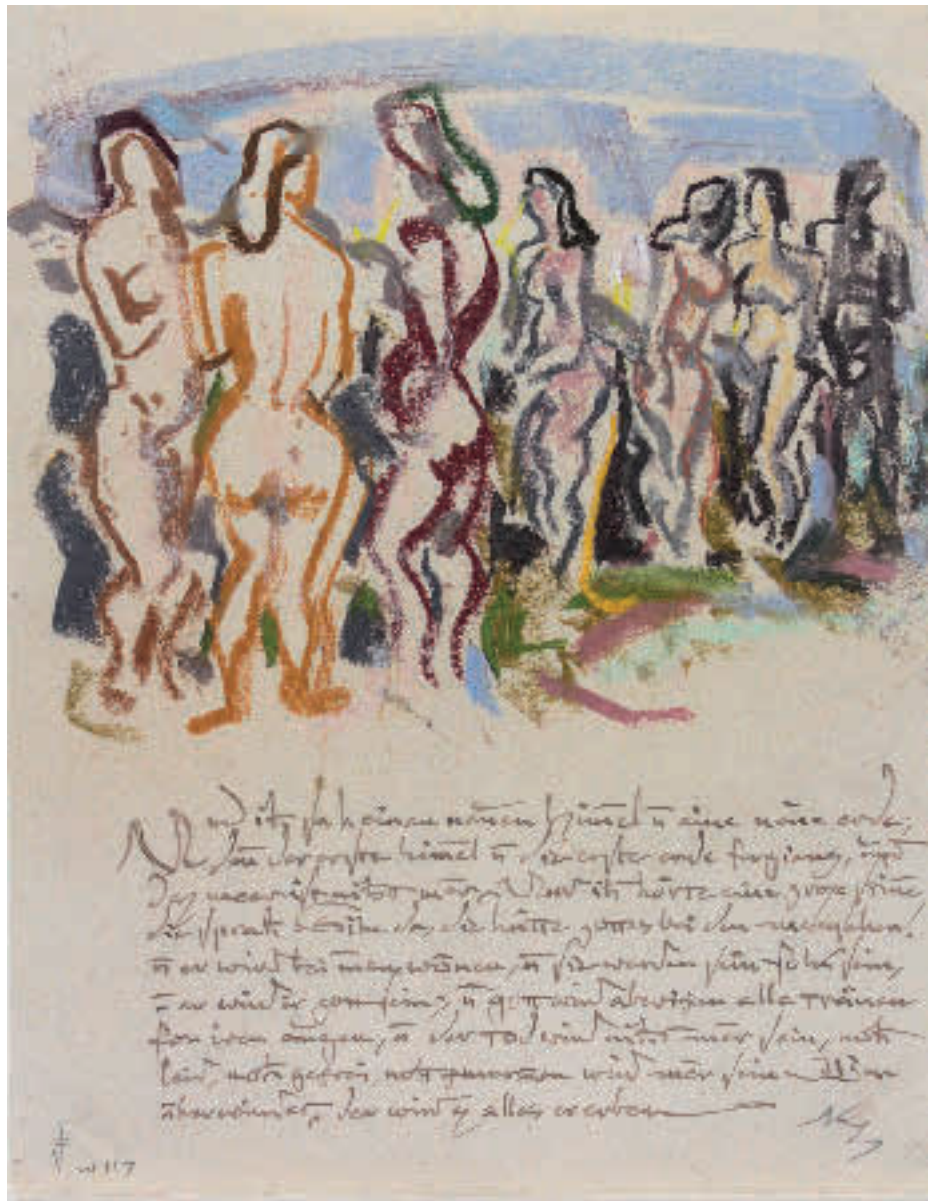 Und ich sah einen näuen himel ñ eine näue erde,
den der erste himel ñ die erste erde fergiang, und
das meer ist nicht mer. Und ich hörte eine grose stime,
die sprach: sihe da, die hütte gottes bei den
ñ er wird bei wonen, ñ sie werden sein folk sein,
er wird ir gott sein; ñ gott wird abwischen alle tränen
fon iren augen, ñ der tod wird nicht mer sein, noch
leid, noch geschrei noch wird mer sein
überwindet, der wird es alles ererben
w 117